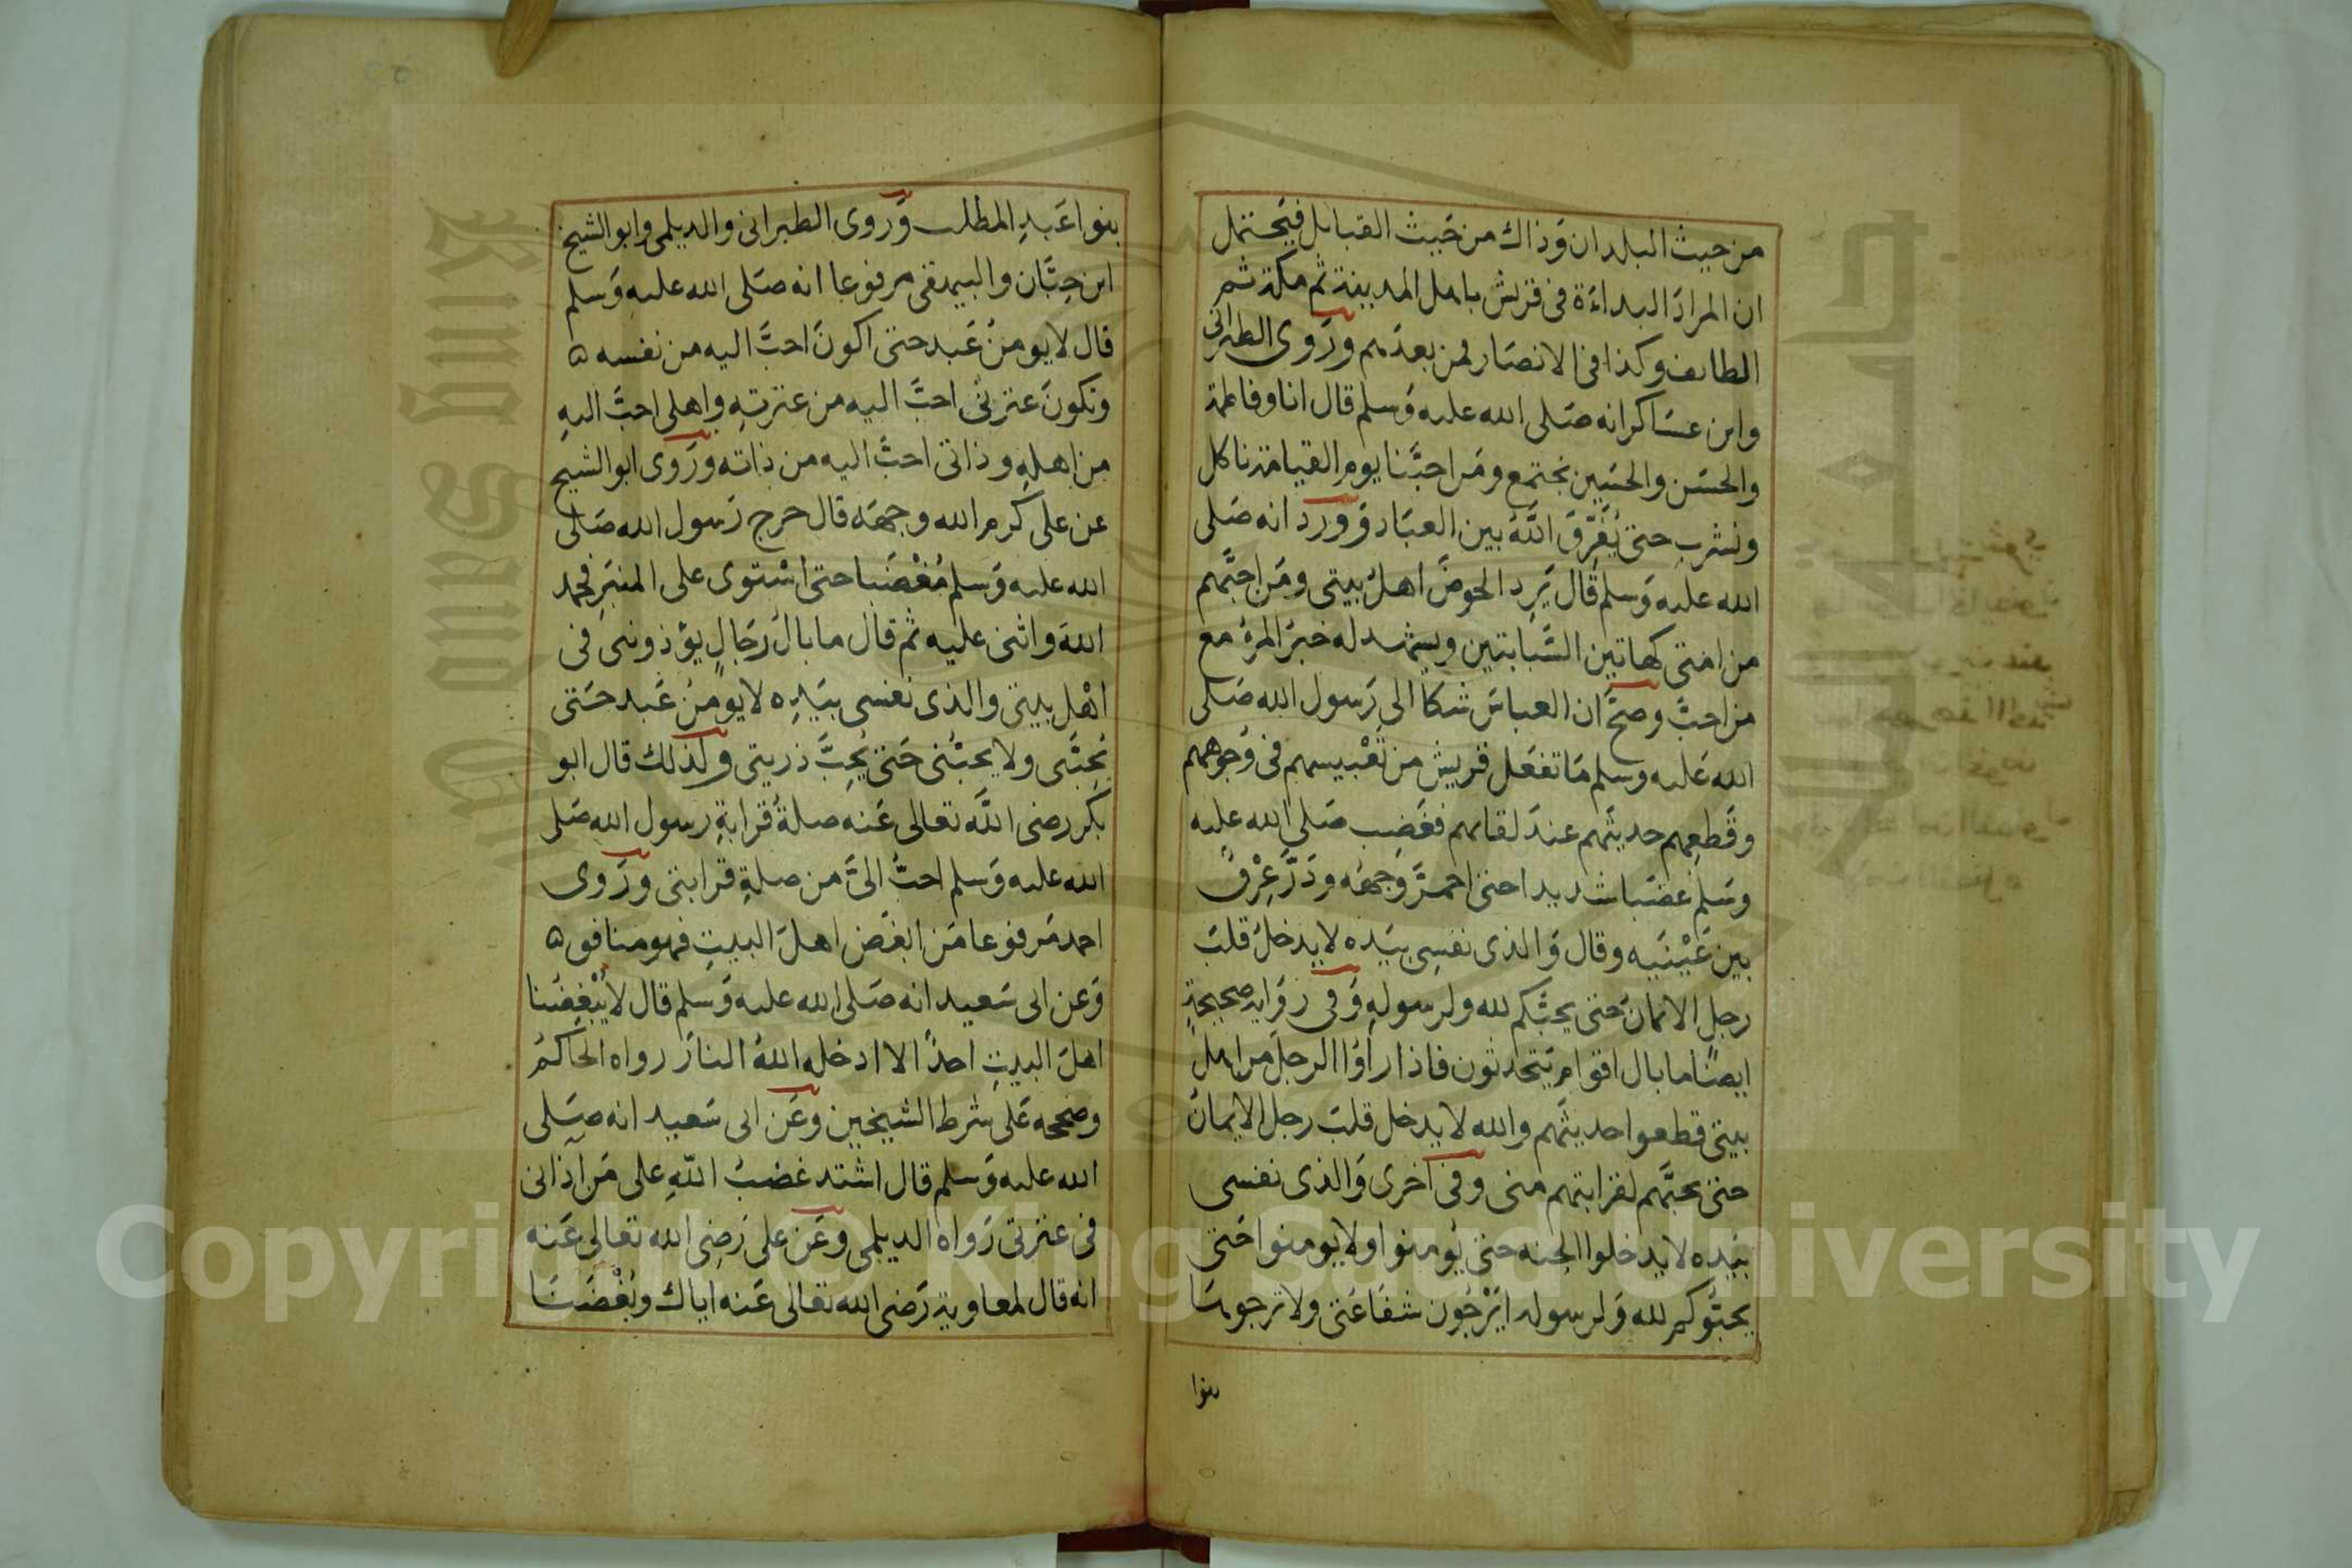 من حيث البلدان وَذاك من حَيث القبايل فيَحتمل
ان المرادَ البداءَة فى قريش باهل المدينة ثم مكة ثم
الطائف وكذا فى الانصَار فمن بعدَهم ورَوى الطبرانى
وابن عسَاكر انه صَلى الله عليه وَسلم قال انا وفاطمة
والحسَن والحسَين نجتمع ومَن احبَّنا يوم القيامة ناكل
ونشرب حتى يُفَرِّقَ اللَّهُ بين العبَاد وَورد انه صَلى
الله عليه وَسلم قال يَرِد الحوضَ اهلُ بيتى ومَن احبَّهم
من امتى كهاتين السَّبابتين ويشهد له خبرُ المرءُ مع
من احبَّ وصحَّ ان العباسَ شكا الى رَسول الله صَلى
الله عَليه وسلم مَا تفعَل قريش من تَعْبيسهم فى وُجوههم
وقَطعِهم حديثَهم عندَ لقائهم فغَضِب صَلى الله عليه
وسَلم غضبًا شديدا حتى احمرَّ وَجهُه ودَرَّ عِرْقٌ
بين عَيْنَيه وقال وَالذى نفسِى بيَده لا يدخلُ قلبَ
رجلٍ الايمانُ حتى يحبَّكم لله ولرسولهِ وَفى روَاية صحيحةٍ
ايضًا ما بال اقوام يَتحدثون فاذا راوُا الرجلَ من اهل
بيتى قطعوا حديثَهم والله لا يدخل قلبَ رجل الايمانُ
حتى يحبَّهم لقرابتهم منى وفى اخرى وَالذى نفسى
بيَده لا يدخلوا الجنه حتى يُومنوا ولا يُومنوا حَتى
يحبُّوكم لله وَلرسوله ايَرْجُون شفَاعَتى ولا ترجوهَا
بنوا
بنوا عَبدِ المطلب وَرَوى الطبرانى والديلمى وابو الشيخ
ابن حِبَّان والبيهقى مرفوعا انه صَلى الله عليه وَسلم
قال لا يومنُ عَبد حتى اكونَ احبَّ اليه من نفسه ۵
وتكونَ عترتى احبَّ اليه من عترتهِ واهلى احبَّ اليهِ
من اهلهِ وذاتى احبَّ اليه من ذاته ورَوى ابو الشيخ
عن على كرم الله وجهَه قال خرج رَسول الله صَلى
الله عليه وَسلم مُغْضَبا حتى اسْتوى على المنبَر فحمد
اللهَ واثنى عليه ثم قال ما بالُ رَجَالٍ يؤذوننى فى
اهْل بيتى والذى نفسى بيَدِه لا يومنُ عَبد حَتى
يُحِبَّنى ولا يحبُّنى حَتى يُحِبَّ ذريتى ولذلك قال ابو
بكر رضى اللَّه تعالى عَنه صلةُ قرابةِ رسول الله صَلى
الله عليه وَسلم احبُّ الىَّ من صلةِ قرابتى ورَوى
احمد مَرفوعا مَن ابغَض اهلَ البيتِ فهو منافق ۵
وَعن ابى سَعيد انه صَلى الله عليه وَسلم قال لا يُبْغِضُنا
اهلَ البيتِ احدٌ الا ادخله اللهُ النارَ رواه الحاكمُ
وصححه عَلى شرط الشيخين وعَن ابى سَعيد انه صَلى
الله عليه وَسلم قال اشتد غضبُ اللّهِ على مَن اذانى
فى عترتى رَواه الديلمى وعَن على رَضِى الله تعَالى عَنه
انه قال لمعاوية رَضى الله تعَالى عَنه اياك وبُغْضَنَا
Copyright © King Saud University